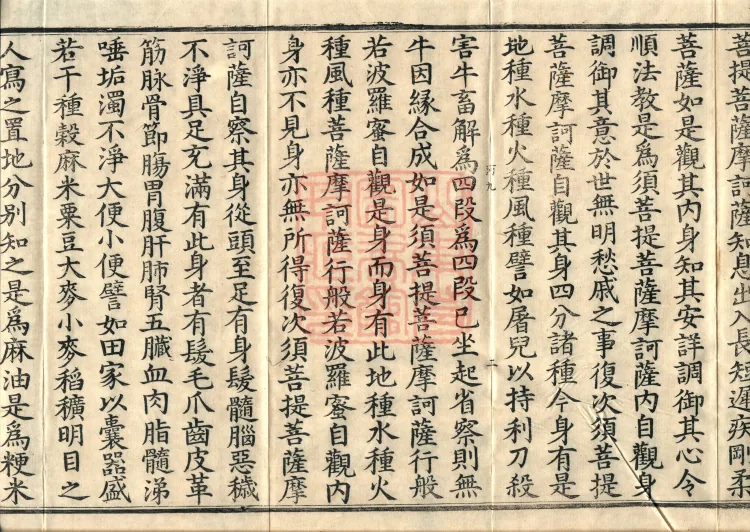 菩提菩薩摩訶薩知息出入長短遲疾剛柔
菩薩如是觀其內身知其安詳調御其心令
順法教是為須菩提菩薩摩訶薩內自觀身
調御其意於世無明愁戚之事復次須菩提
菩薩摩訶薩自觀其身四分諸種今身有是
地種水種火種風種譬如屠兒以持利刀殺
害牛畜解為四段為四段已坐起省察則無
牛因緣合成如是須菩提菩薩摩訶薩行般
若波羅蜜自觀是身而身有此地種水種火
種風種菩薩摩訶薩行般若波羅蜜自觀內
身亦不見身亦無所得復次須菩提菩薩摩
訶薩自察其身從頭至足有身髮髓腦惡穢
不淨具足充滿有此身者有髮毛爪齒皮革
筋脉骨節腸胃腹肝肺腎五臟血肉脂髓涕
唾垢濁不淨大便小便譬如田家以囊器盛
若干種穀麻米粟豆大麥小麥稻穬明目之
人寫之置地分別知之是為麻油是為粳米